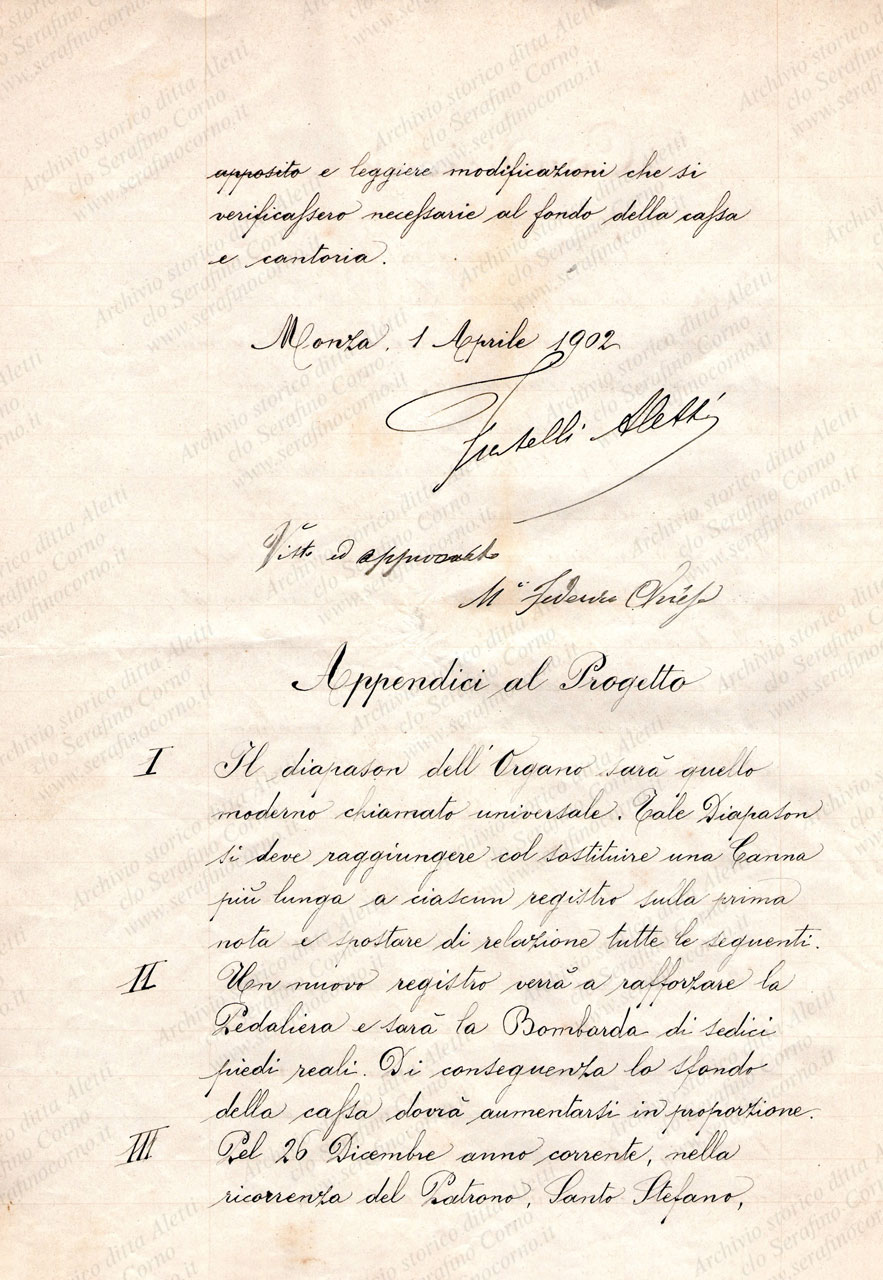 apposito e leggiere modificazioni che si
verificassero necessarie al fondo della cassa
e cantoria.
Monza, 1 Aprile 1902
Fratelli Aletti
Visto ed approvato
M° Federico Chiesa
Appendici al Progetto
I Il diapason dell'Organo sarà quello
moderno chiamato universale. Tale Diapason
si deve raggiungere col sostituire una Canna
più lunga a ciascun registro sulla prima
nota e spostare di relazione tutte le seguenti.
II Un nuovo registro verrà a rafforzare la
Pedaliera e sarà la Bombarda di sedici
piedi reali. Di conseguenza lo sfondo
della cassa dovrà aumentarsi in proporzione.
III Pel 26 Dicembre anno corrente, nella
ricorrenza del Patrono, Santo Stefano,
Archivio storico ditta Aletti
c/o Serafino Corno
www.serafinocorno.it